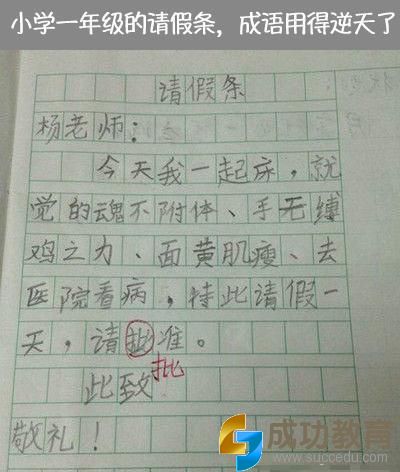 小学一年级的请假条，成语用得逆天了
请假条
杨老师：
今天我一起床，就
觉的魂不附体、手无缚
鸡之力、面黄肌瘦、去
医院看病，特此请假一
天，请批准。
批
此致
敬礼！
成功教育
www.succedu.com